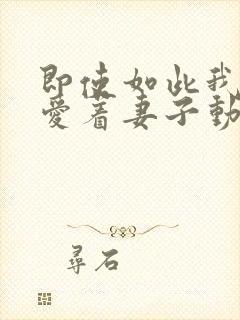 即使如此我
愛着妻子動
尋石